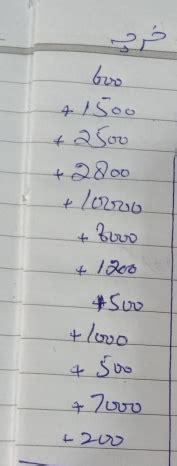 خرچ
600
+ 1500
+ 2500
+ 2800
+ 10000
+ 8000
+ 1200
+ 500
+ 1000
+ 500
+ 7000
+ 200